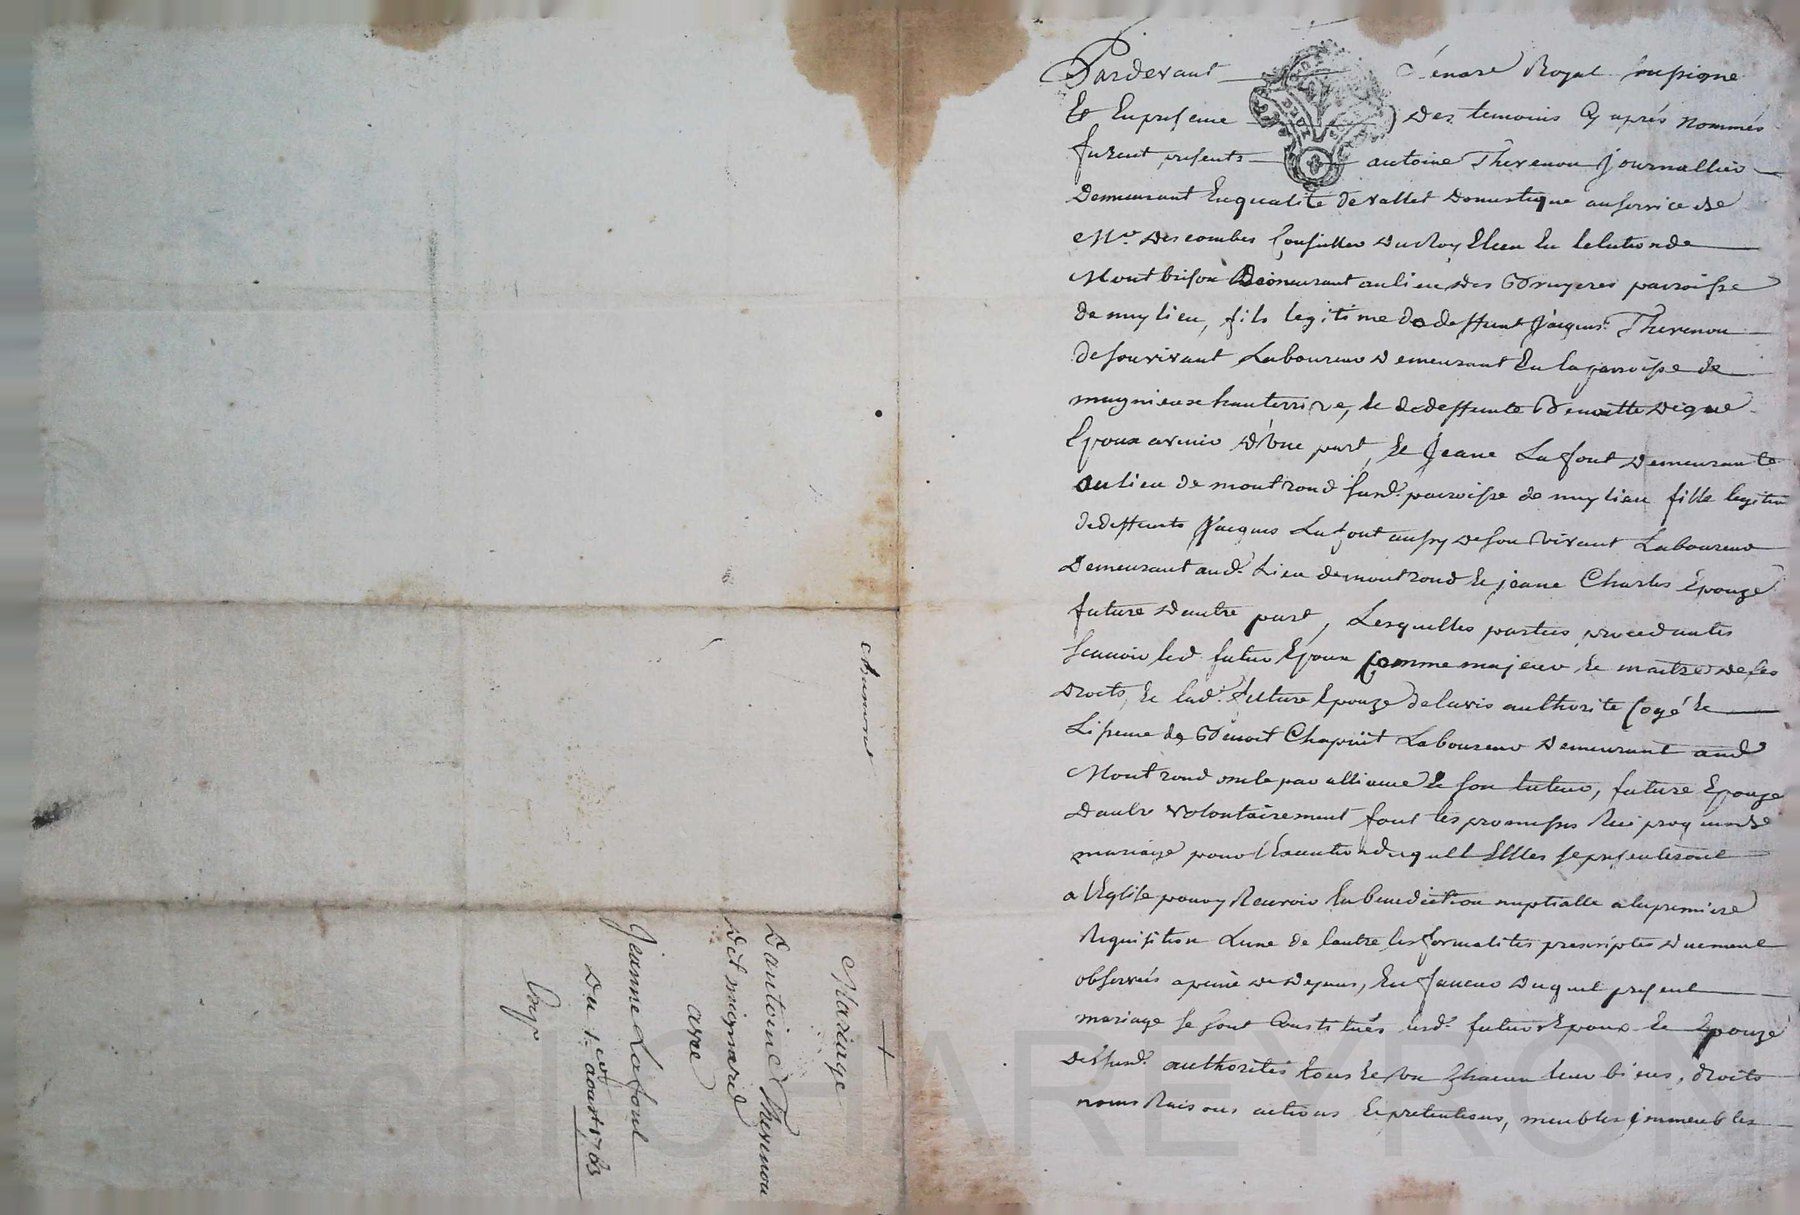 chaumont
Mariage
D'antoine Thevenou
Dit mignard
avec
Jeanne Lafont
Du 1er aoust 1763
Expe
Pardevant Nore Royal soussigne
Et En presence Des temoins Cy après nommés
furent presents antoine Thevenou Journallier
Demeurant En qualité de vallet Domestique au service de
Mr. Descombes Conseiller du Roy Eleu En lelection de
Montbrison Demeurant au lieu des Bruyeres parroisse
de mylieu, fils legitime de deffunt Jacques Thevenou
de son vivant Laboureur Demeurant En la parroisse de
magnieux hauterive, Et de deffunte Benoitte Digne
Epoux avenir D'Une part, Et Jeane Lafont Demeurante
au lieu de montrond susd. parroisse de mylieu fille legitime
de deffunts Jacques Lafont aussy de son vivant Laboureur
Demeurant aud. Lieu de montrond Et jeane Charles Epouze
future D'autre part, Lesquelles parties procedantes
Scauoir led. futur Epoux Comme majeur Et maitre de ses
Droits, Et lad. future Epouze de lavis authorité Congé Et
Lissance de Benoit Chapuit Laboureur Demeurant aud.
Montrond oncle par alliance Et son tuteur, future Epouze
D'autre volontairement font les promesses Reciproques de
mariage pour l'Execution duquel Elles se presenteront
a l'Eglise pour y Recevoir La benediction nuptialle a la premiere
Requisition Lune de lautre les formalites prescriptes Duement
observés a peine de Depens, En faveur Duquel present
mariage se sont Constitués lesd. futurs Epoux Et Epouze
Desusd. authorités tous Et Un Chacun leur biens, droits
noms Raisons actions Et pretentions, meubles immeubles
CHAREYRON